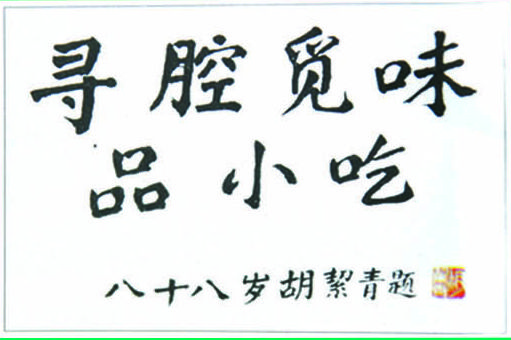 寻腔觅味
品小吃
八十八岁胡絜青题